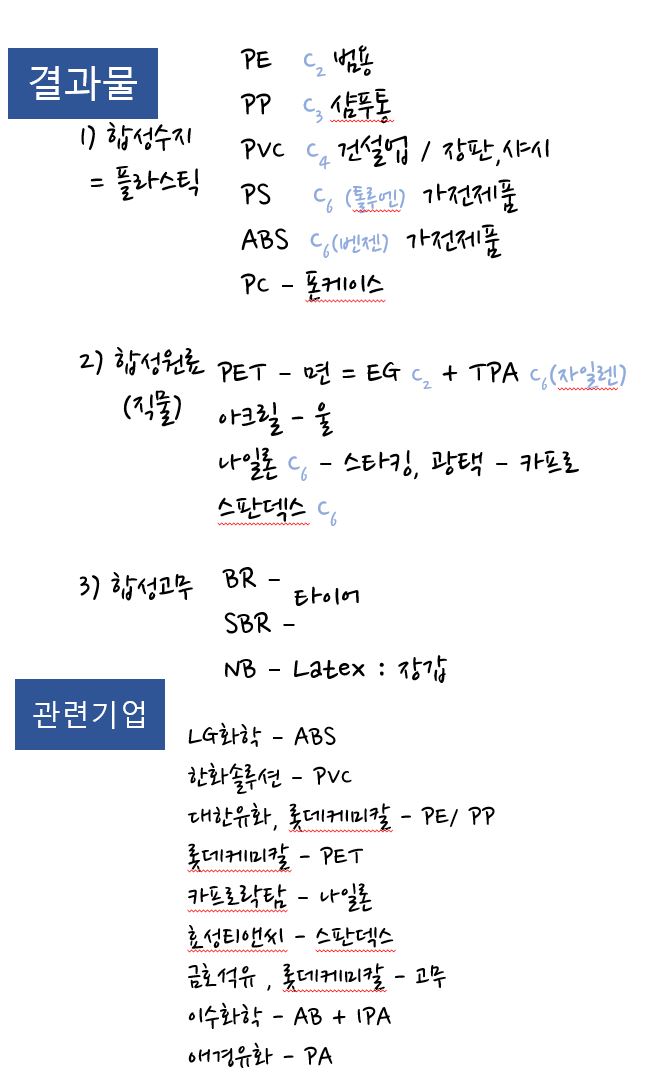 결과물
1) 합성수지
= 플라스틱
PE C₂ 범용
PP C₃ 샴푸통
PVC C₄ 건설업 / 장판,샤시
PS C₆ (톨루엔) 가전제품
ABS C₆(벤젠) 가전제품
PC - 폰케이스
2) 합성원료
(직물)
PET - 면 = EG C₂ + TPA C₆(자일렌)
아크릴 - 울
나일론 C₆ - 스타킹, 광택 - 카프로
스판덱스 C₆
3) 합성고무
BR -
타이어
SBR -
NB - Latex : 장갑
관련기업
LG화학 - ABS
한화솔루션 - PVC
대한유화, 롯데케미칼 - PE/ PP
롯데케미칼 - PET
카프로락탐 - 나일론
효성티앤씨 - 스판덱스
금호석유 , 롯데케미칼 - 고무
이수화학 - AB + IPA
애경유화 - PA